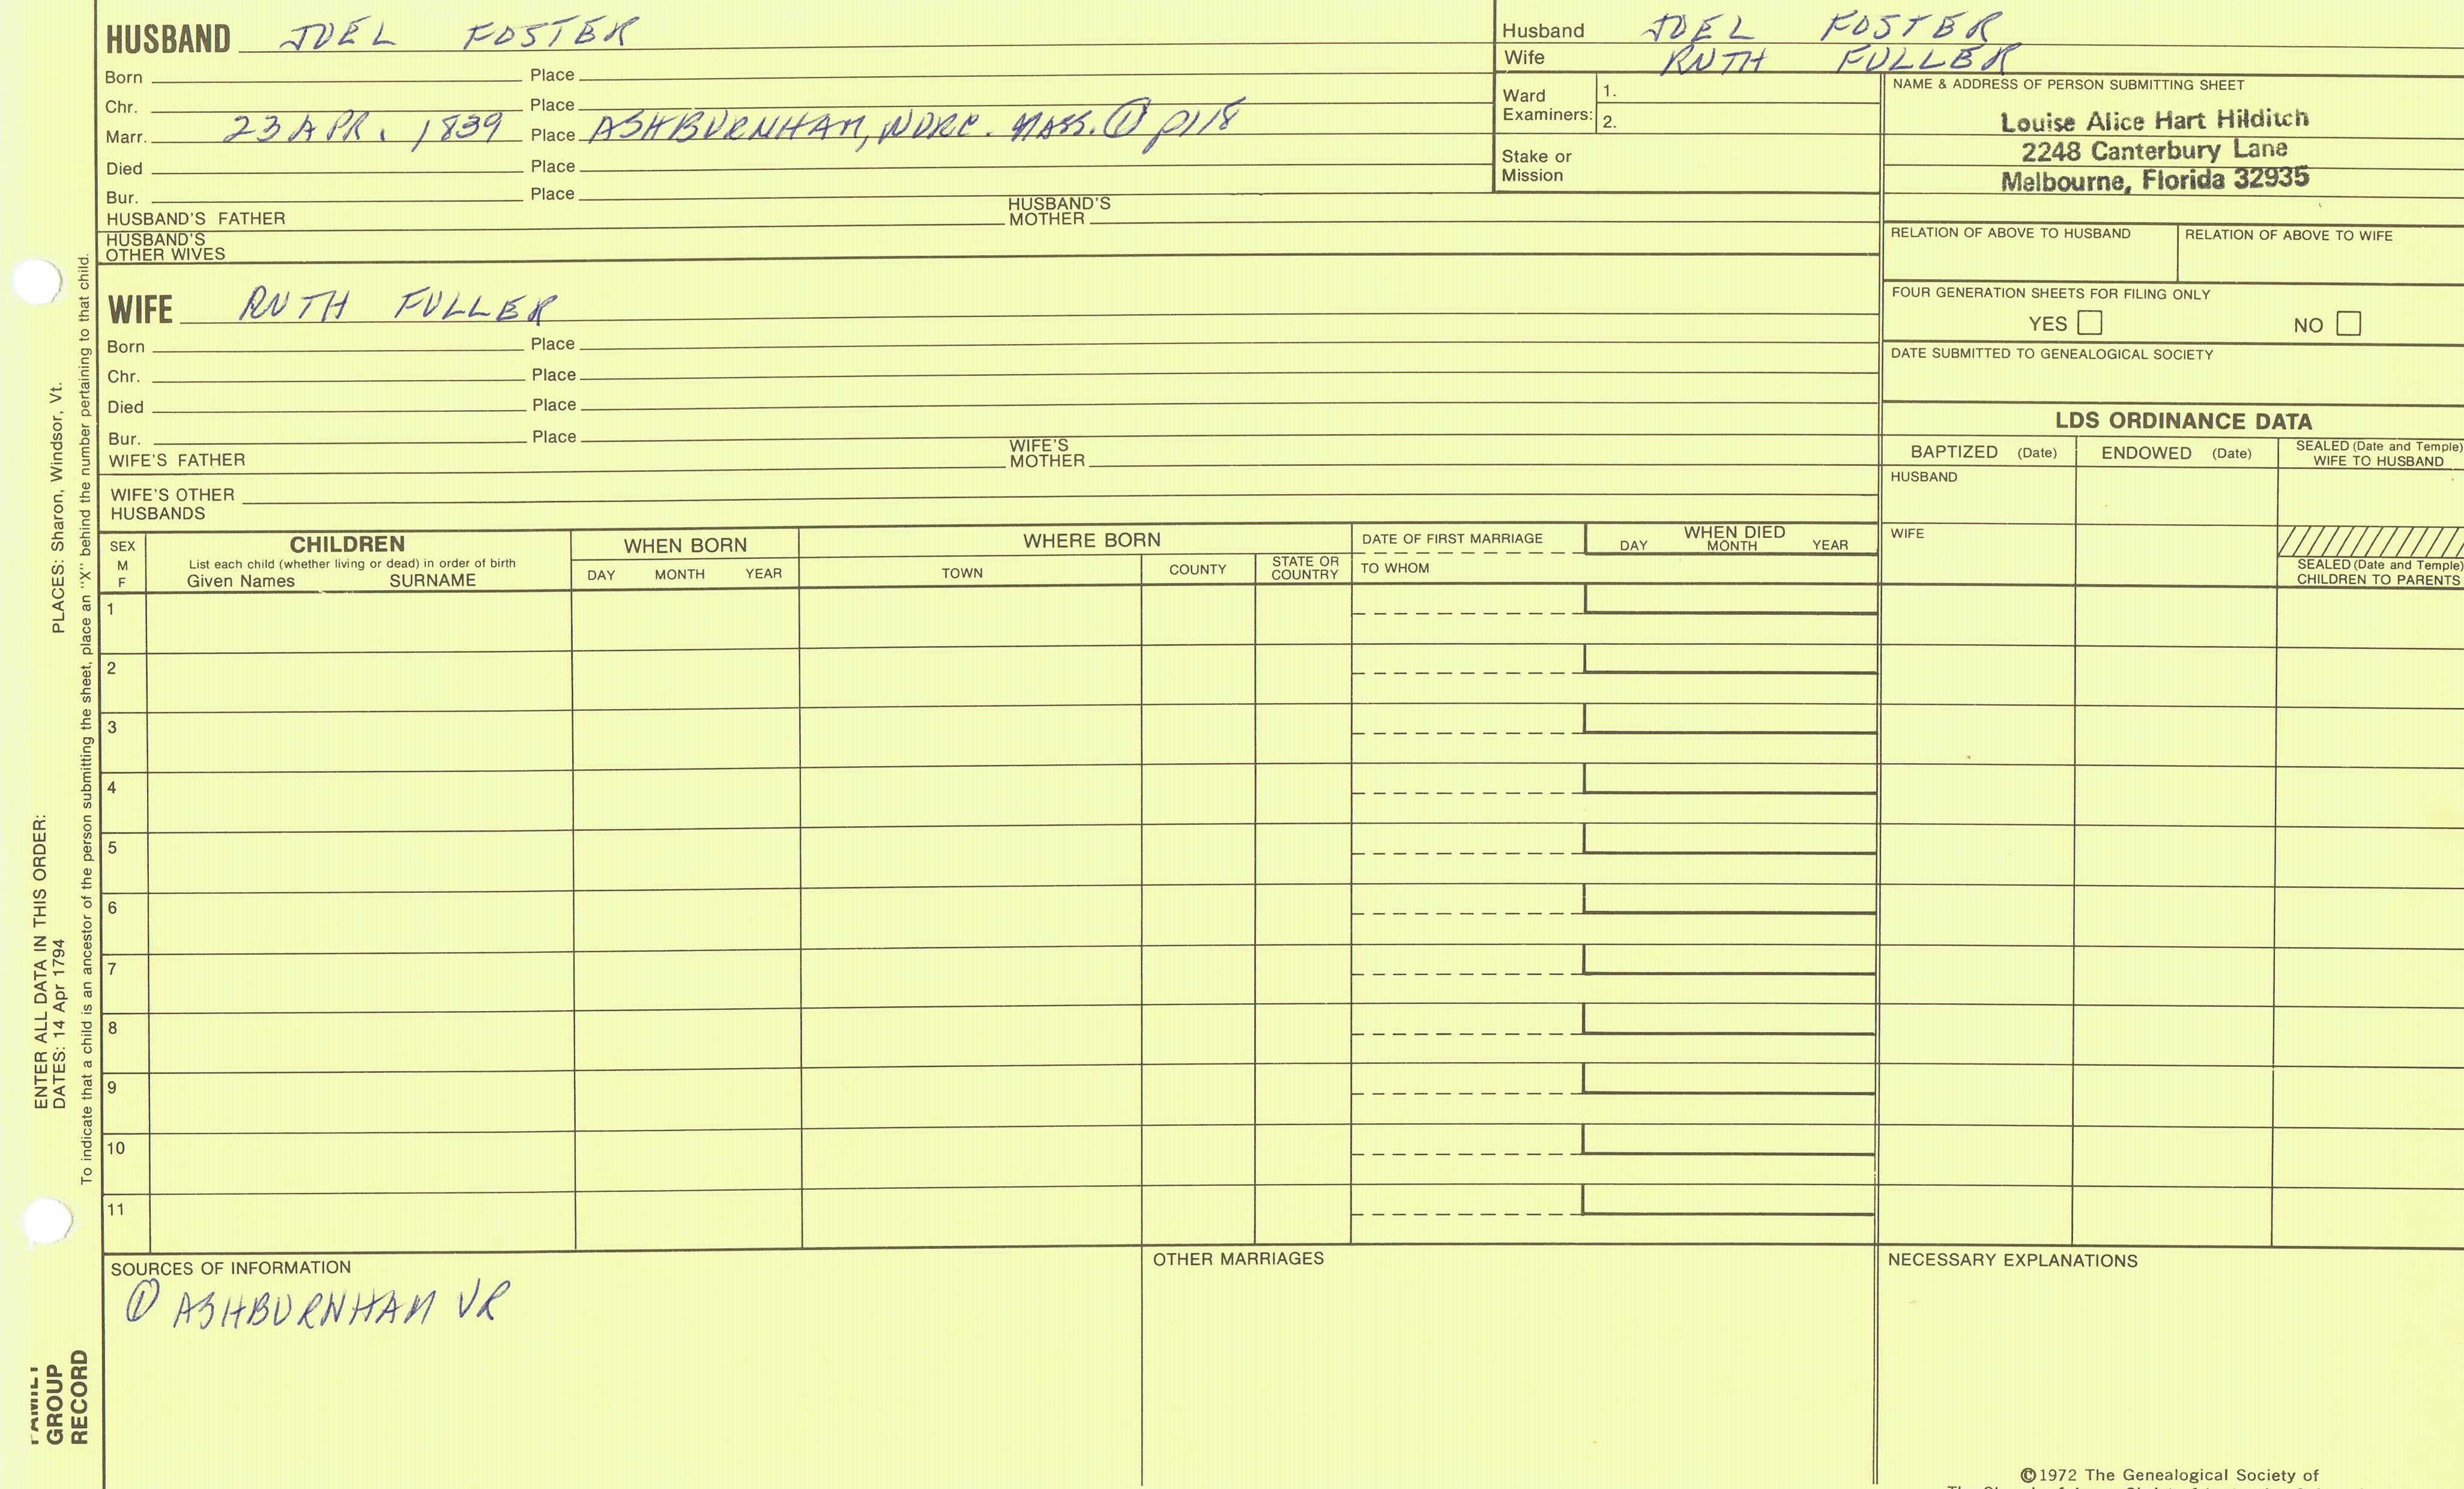 HUSBAND JOEL FOSTER
Born Place
Chr. Place
Marr. 23 APR. 1839 Place ASHBURNHAM, WORC. MASS. ① p118
Died Place
Bur. Place
HUSBAND'S FATHER HUSBAND'S MOTHER
HUSBAND'S OTHER WIVES
Husband JOEL FOSTER
Wife RUTH FULLER
Ward Examiners: 1.
2.
Stake or Mission
NAME & ADDRESS OF PERSON SUBMITTING SHEET
Louise Alice Hart Hilditch
2248 Canterbury Lane
Melbourne, Florida 32935
RELATION OF ABOVE TO HUSBAND RELATION OF ABOVE TO WIFE
FOUR GENERATION SHEETS FOR FILING ONLY
YES NO
DATE SUBMITTED TO GENEALOGICAL SOCIETY
WIFE RUTH FULLER
Born Place
Chr. Place
Died Place
Bur. Place
WIFE'S FATHER WIFE'S MOTHER
WIFE'S OTHER HUSBANDS
LDS ORDINANCE DATA
BAPTIZED (Date) ENDOWED (Date) SEALED (Date and Temple) WIFE TO HUSBAND
HUSBAND
WIFE
SEALED (Date and Temple) CHILDREN TO PARENTS
SEX M F
CHILDREN
List each child (whether living or dead) in order of birth
Given Names SURNAME
WHEN BORN
DAY MONTH YEAR
WHERE BORN
TOWN COUNTY STATE OR COUNTRY
DATE OF FIRST MARRIAGE
TO WHOM
WHEN DIED
DAY MONTH YEAR
1
2
3
4
5
6
7
8
9
10
11
SOURCES OF INFORMATION
① ASHBURNHAM VR
OTHER MARRIAGES
NECESSARY EXPLANATIONS
©1972 The Genealogical Society of
ENTER ALL DATA IN THIS ORDER:
DATES: 14 Apr 1794 PLACES: Sharon, Windsor, Vt.
To indicate that a child is an ancestor of the person submitting the sheet, place an "X" behind the number pertaining to that child.
FAMILY
GROUP
RECORD